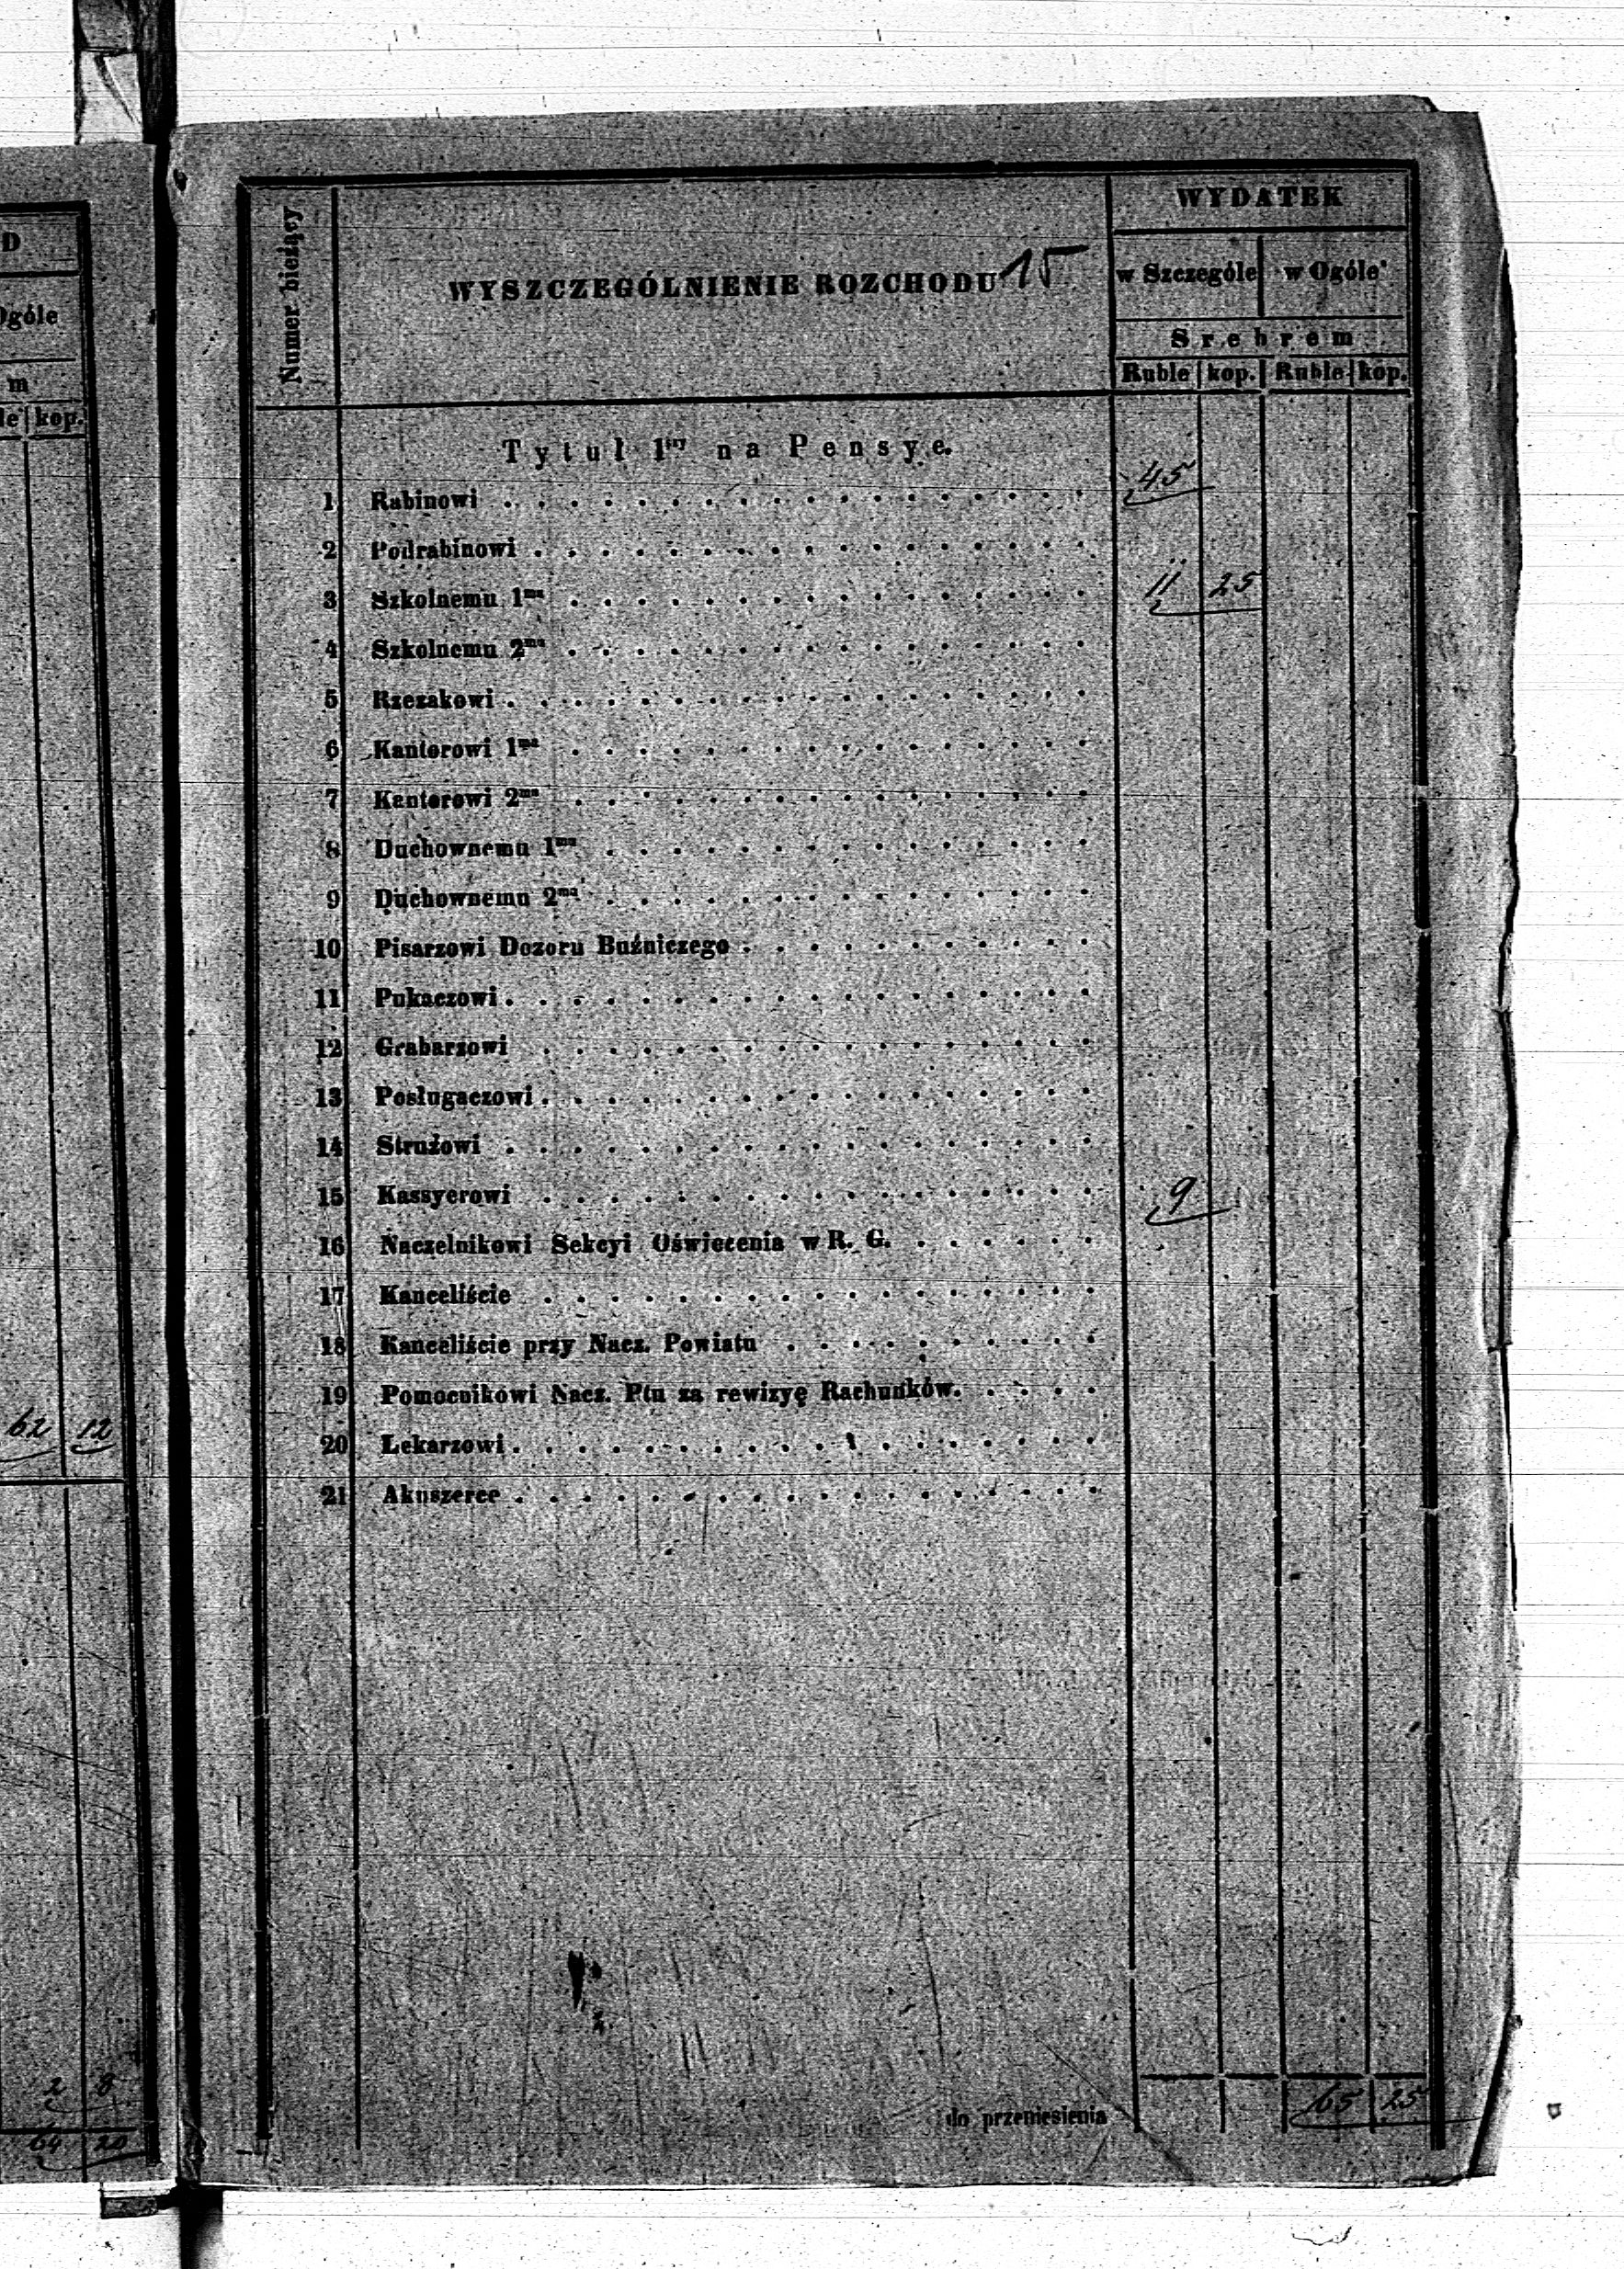 D
Ogóle
m
le kop.
62 12
2 8
64 20
Numer bieżący
WYSZCZEGÓLNIENIE ROZCHODU 15
WYDATEK
w Szczególe w Ogóle
Srebrem
Ruble kop. Ruble kop.
Tytuł 1szy na Pensye.
1 Rabinowi . . . . . . . . . . . . . . . . . . 45
2 Podrabinowi . . . . . . . . . . . . . . . . .
3 Szkolnemu 1mu . . . . . . . . . . . . . . . . 11 25
4 Szkolnemu 2mu . . . . . . . . . . . . . . . .
5 Rzezakowi . . . . . . . . . . . . . . . . . .
6 Kantorowi 1mu . . . . . . . . . . . . . . . .
7 Kantorowi 2mu . . . . . . . . . . . . . . . .
8 Duchownemu 1mu . . . . . . . . . . . . . . .
9 Duchownemu 2mu . . . . . . . . . . . . . . .
10 Pisarzowi Dozoru Buźniczego . . . . . . . . . . .
11 Pukaczowi . . . . . . . . . . . . . . . . . .
12 Grabarzowi . . . . . . . . . . . . . . . . .
13 Posługaczowi . . . . . . . . . . . . . . . . .
14 Strużowi . . . . . . . . . . . . . . . . . .
15 Kassyerowi . . . . . . . . . . . . . . . . . 9
16 Naczelnikowi Sekcyi Oświecenia w R. G. . . . . . .
17 Kanceliście . . . . . . . . . . . . . . . . .
18 Kanceliście przy Nacz. Powiatu . . . . . . . . . .
19 Pomocnikowi Nacz. Ptu za rewizyę Rachunków. . . . .
20 Lekarzowi . . . . . . . . . . . . . . . . . .
21 Akuszerce . . . . . . . . . . . . . . . . . .
do przeniesienia 65 25